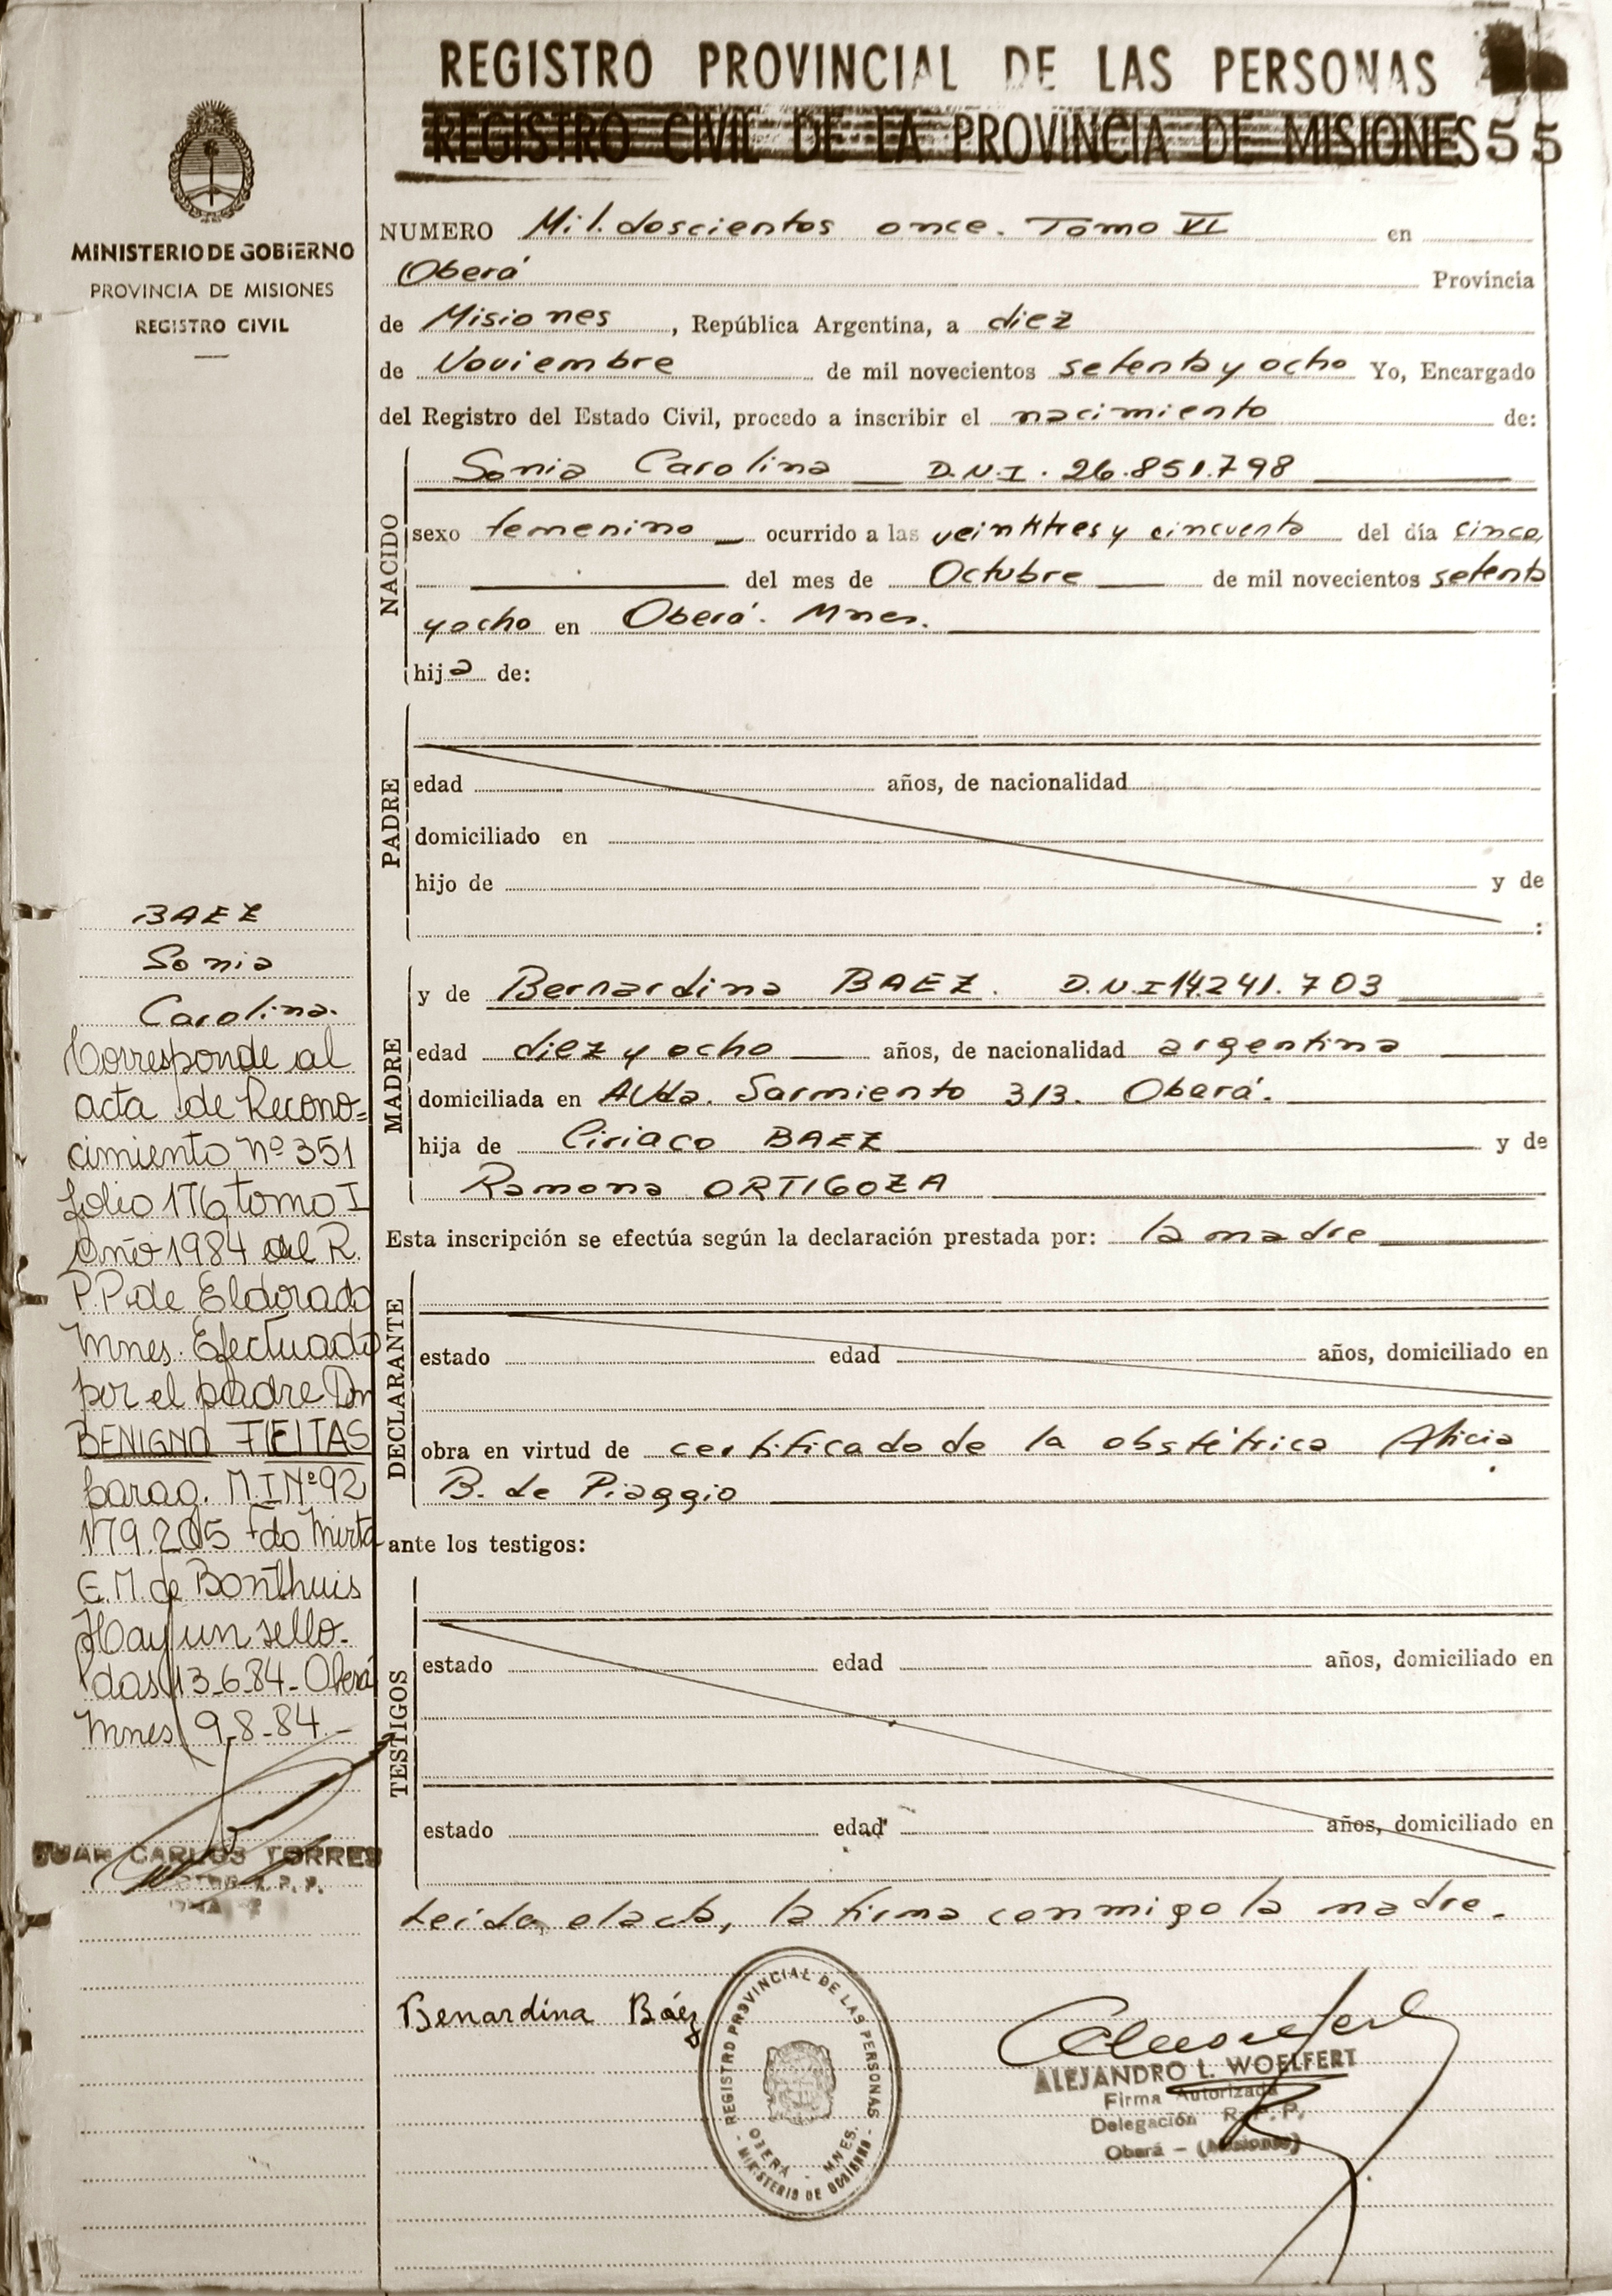 REGISTRO PROVINCIAL DE LAS PERSONAS
REGISTRO CIVIL DE LA PROVINCIA DE MISIONES 55
MINISTERIO DE GOBIERNO
PROVINCIA DE MISIONES
REGISTRO CIVIL
NUMERO Mil. doscientos once. Tomo VI en
Oberá Provincia
de Misiones, República Argentina, a diez
de Noviembre de mil novecientos setenta y ocho Yo, Encargado
del Registro del Estado Civil, procedo a inscribir el nacimiento de:
NACIDO
Sonia Carolina D.N.I. 26.851.798
sexo femenino ocurrido a las veintitres y cincuenta del día cinco,
del mes de Octubre de mil novecientos setenta
y ocho en Oberá. Mnes.
hija de:
PADRE
edad años, de nacionalidad
domiciliado en
hijo de y de
:
MADRE
y de Bernardina BAEZ. D.N.I 14.241.703
edad diez y ocho años, de nacionalidad argentina
domiciliada en AVda. Sarmiento 313. Oberá.
hija de Ciriaco BAEZ y de
Ramona ORTIGOZA
Esta inscripción se efectúa según la declaración prestada por: la madre
DECLARANTE
estado edad años, domiciliado en
obra en virtud de certificado de la obstétrica Alicia
B. de Piaggio
ante los testigos:
TESTIGOS
estado edad años, domiciliado en
estado edad años, domiciliado en
Leída el acta, la firma conmigo la madre.
Benardina Báez
REGISTRO PROVINCIAL DE LAS PERSONAS
OBERA - MNES.
- MINISTERIO DE GOBIERNO -
ALEJANDRO L. WOELFERT
Firma Autorizada
Delegación R.P.P.
Oberá - (Misiones)
BAEZ
Sonia
Carolina.
Corresponde al
acta de Recono=
cimiento Nº 351
folio 176 tomo I
año 1984 del R.
P.P. de Eldorado
Mnes. Efectuado
por el padre Dn
BENIGNO FLEITAS
parag. M.I Nº 92
179.205 fdo Mirta
E.M. de Bonthuis
Hay un sello.
das 13-6-84- Oberá
Mnes 9-8-84.-
JUAN CARLOS TORRES
R.P.P.